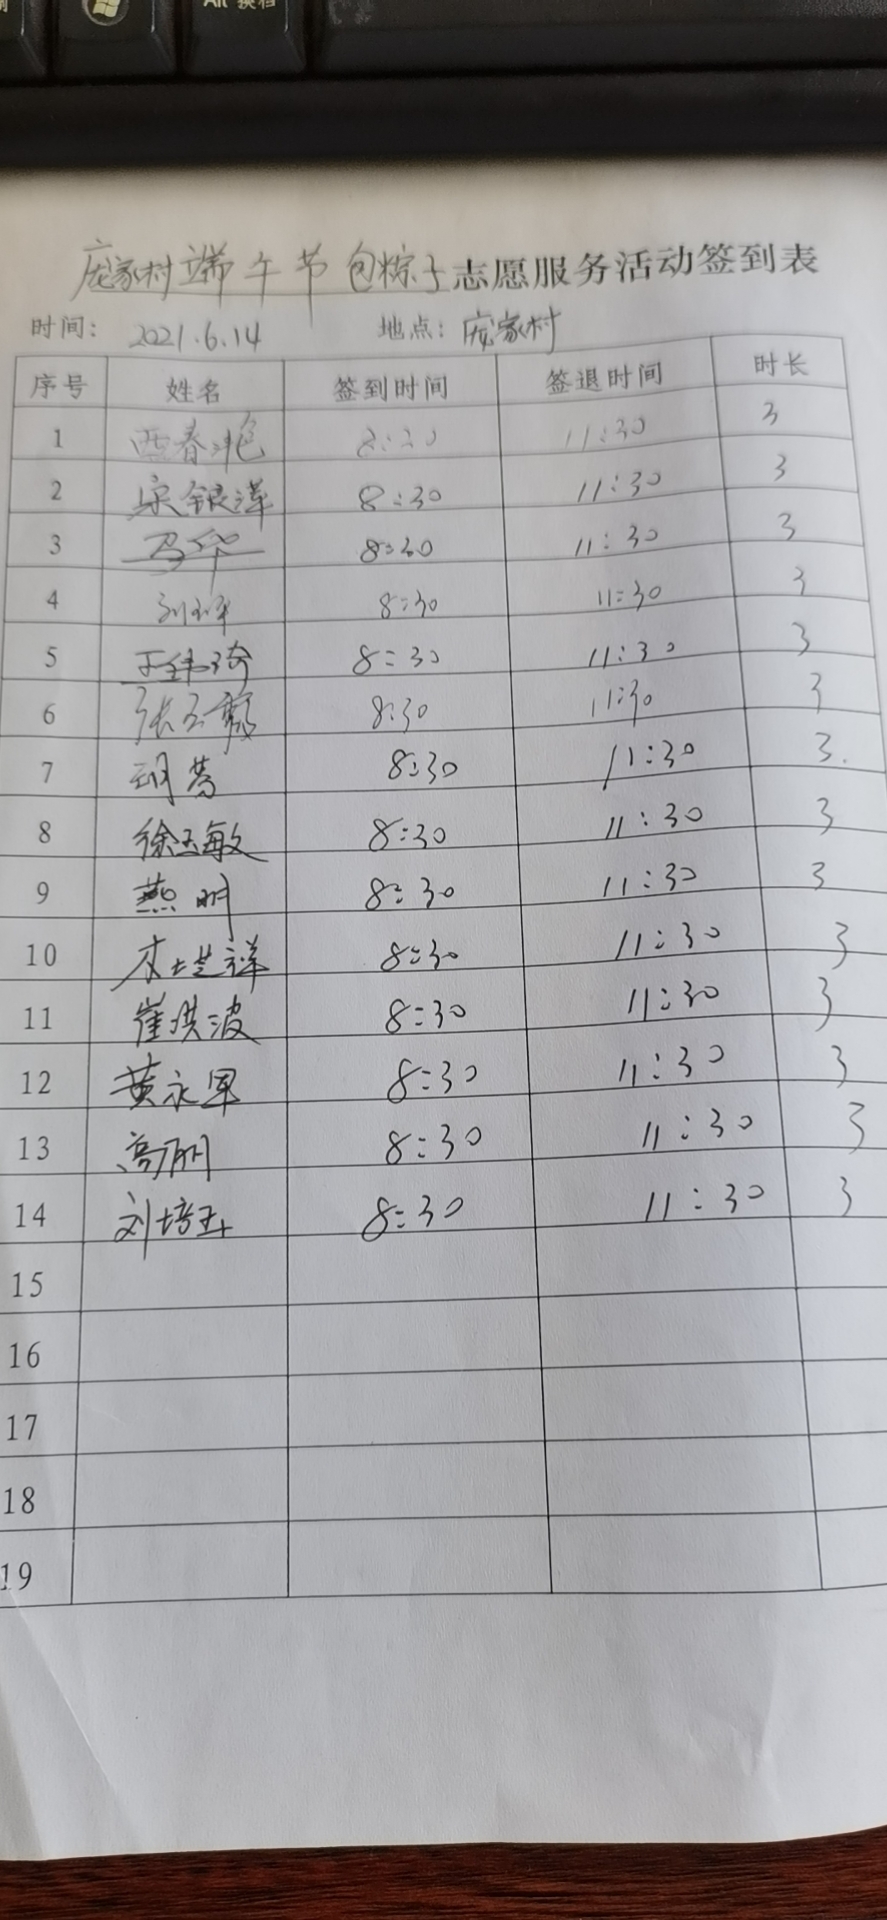 Alt 换档
庞家村端午节包粽子志愿服务活动签到表
时间： 2021.6.14 地点：庞家村
序号 姓名 签到时间 签退时间 时长
1 8:30 11:30 3
2 宋银萍 8:30 11:30 3
3 马华 8:30 11:30 3
4 8:30 11:30 3
5 8:30 11:30 3
6 8:30 11:30 3
7 8:30 11:30 3.
8 徐玉敏 8:30 11:30 3
9 燕明 8:30 11:30 3
10 8:30 11:30 3
11 崔洪波 8:30 11:30 3
12 黄永军 8:30 11:30 3
13 高丽 8:30 11:30 3
14 刘培玉 8:30 11:30 3
15
16
17
18
19